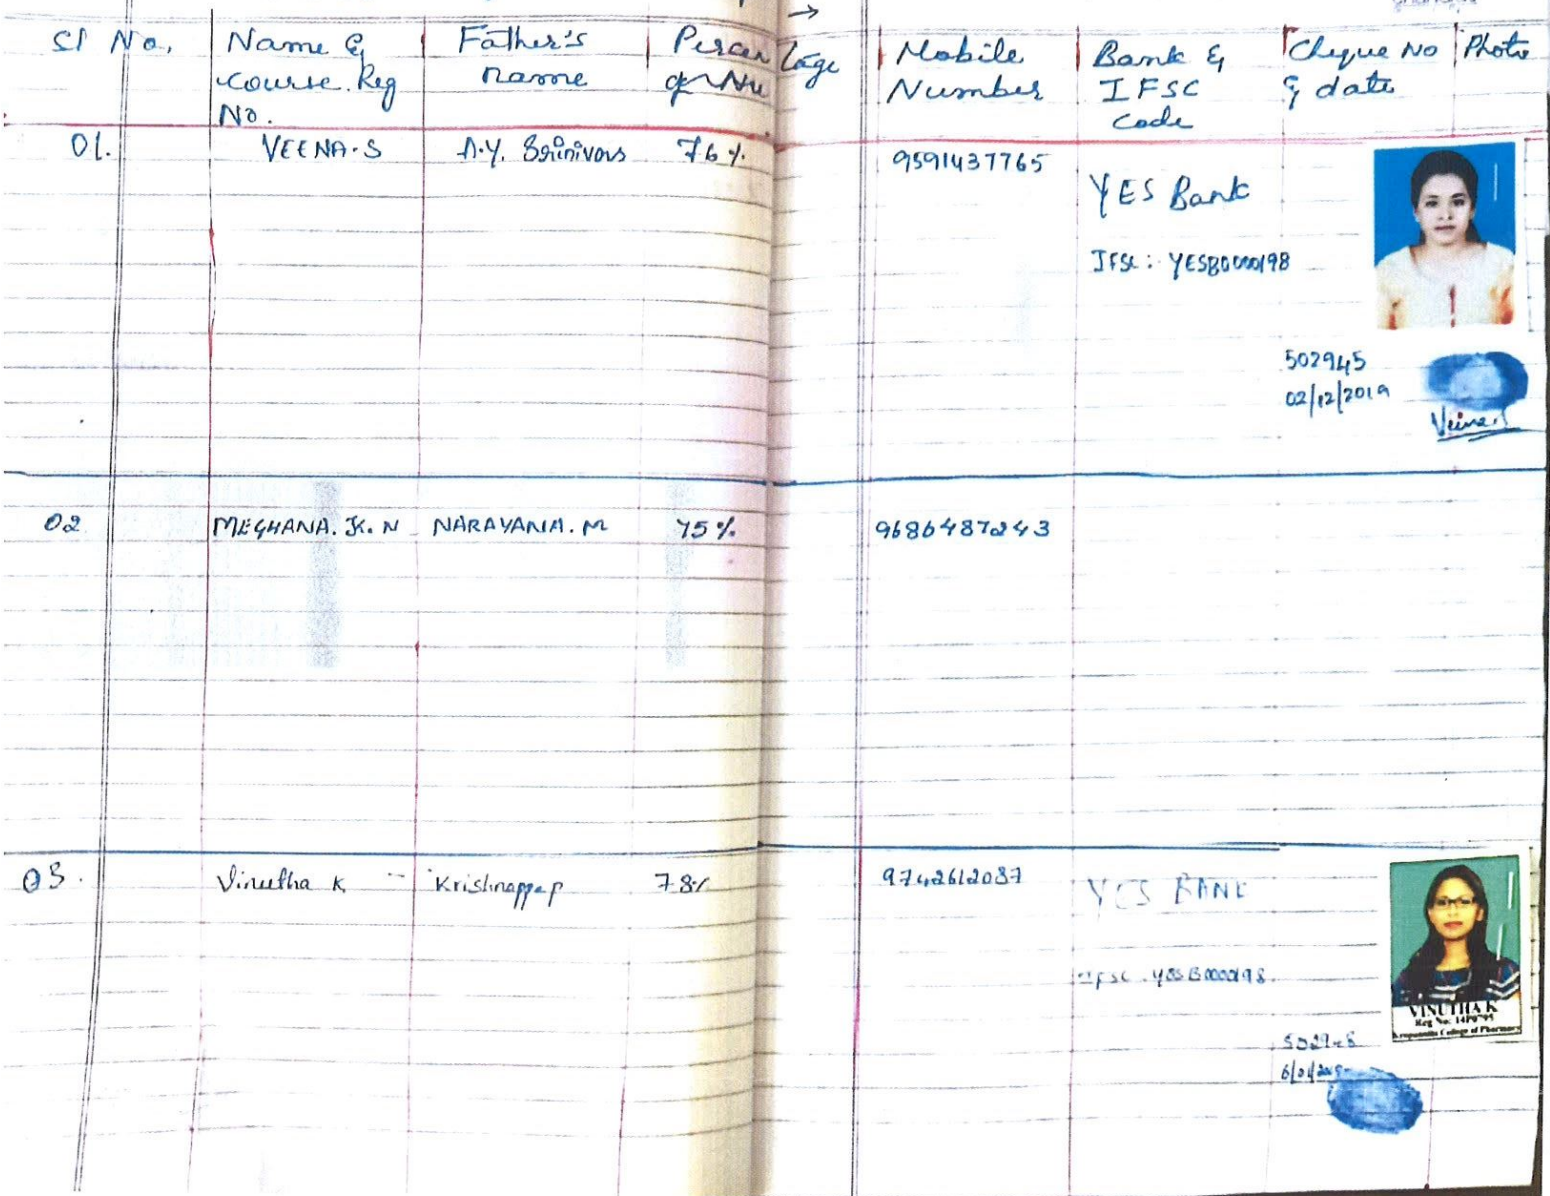 Sl No.
Name &
Course. Reg
No.
Father's
name
Percen tage
Mobile
Number
Bank &
IFSC
Code
Cheque No
& date
Photo
01.
VEENA.S
A.Y. Srinivas
76%
9591437765
YES Bank
IFSC: YESB0000198
502945
02/12/2019
Veena.S
02
MEGHANA. K. N
NARAYANA. M
75%
9686487243
03.
Vinutha K
Krishnappa p
78%
9742612087
YES BANK
IFSC. YESB0000198.
VINUTHA K
Reg No: 14P0795
College of Pharmacy